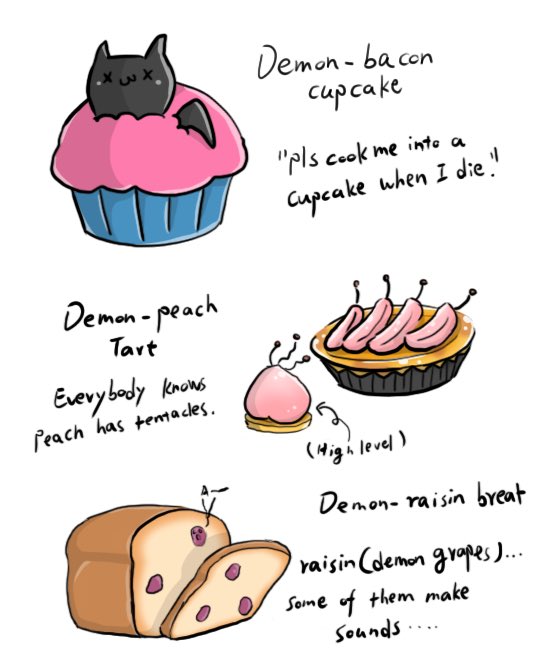 Demon-bacon
cupcake
"pls cook me into a
cupcake when I die."
Demon-peach
Tart
Everybody knows
peach has tentacles.
(High level)
Demon-raisin breat
A~
raisin(demon grapes)...
some of them make
sounds ....